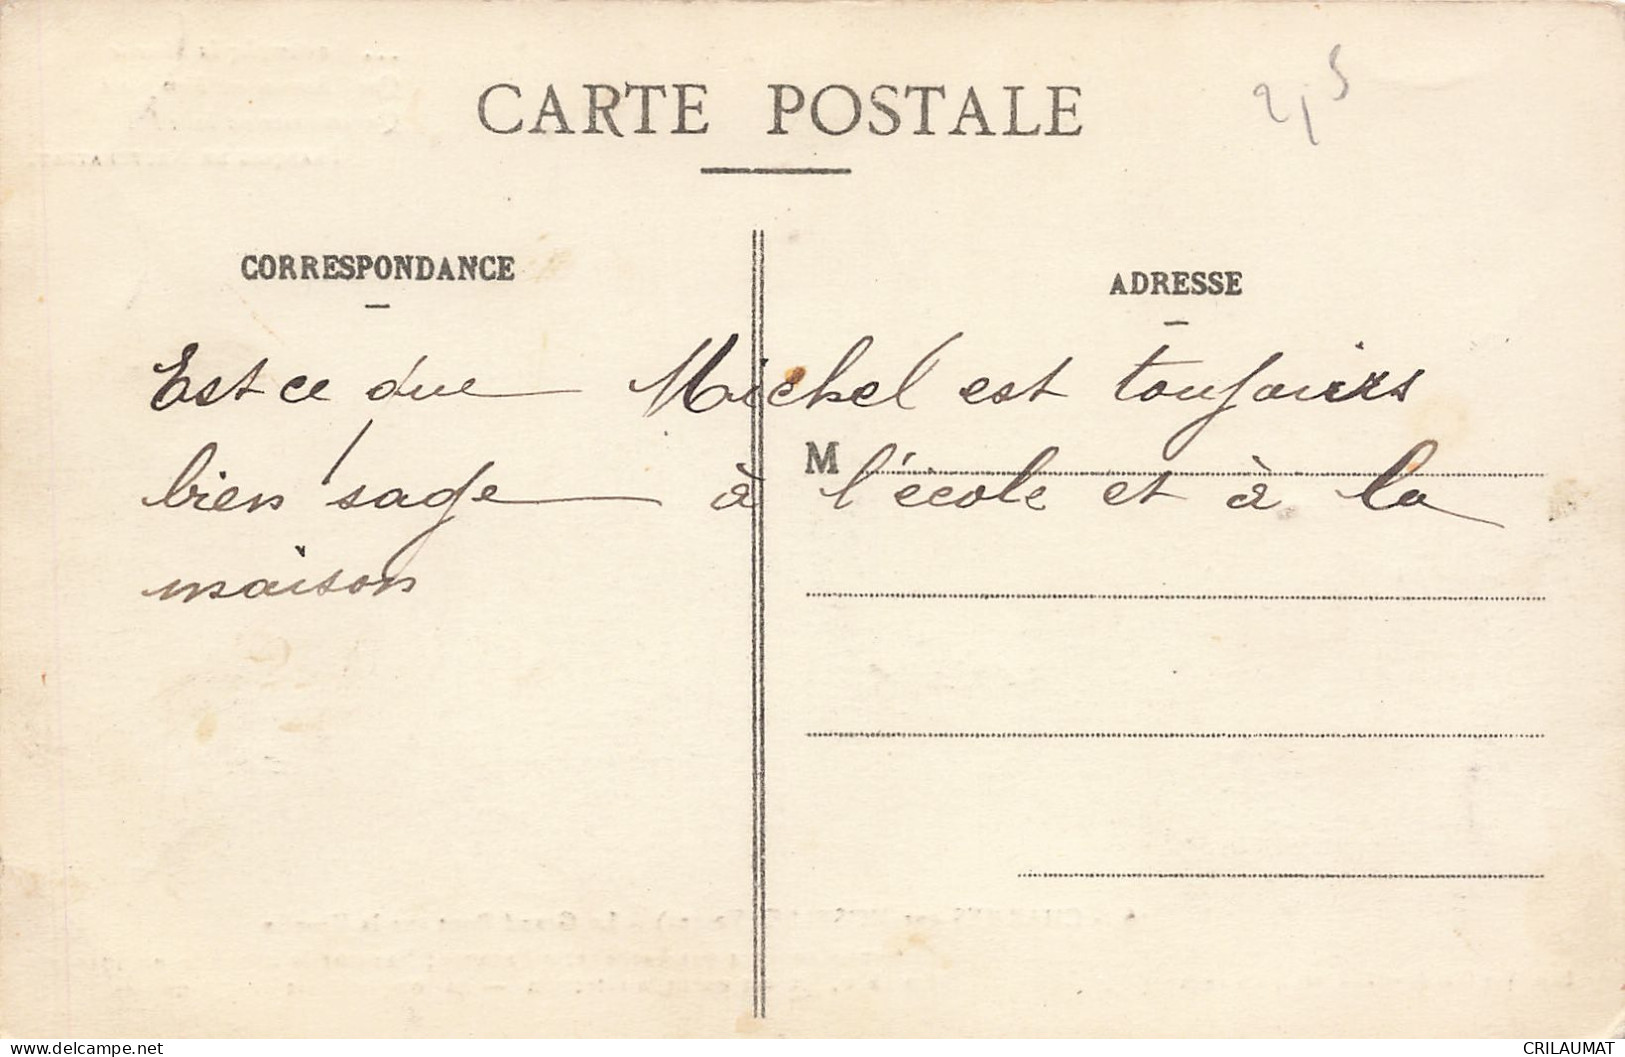 CARTE POSTALE
2,5
CORRESPONDANCE
ADRESSE
Est ce que Michel est toujours
M
bien sage à l'école et à la
maison
delcampe.net
CRILAUMAT